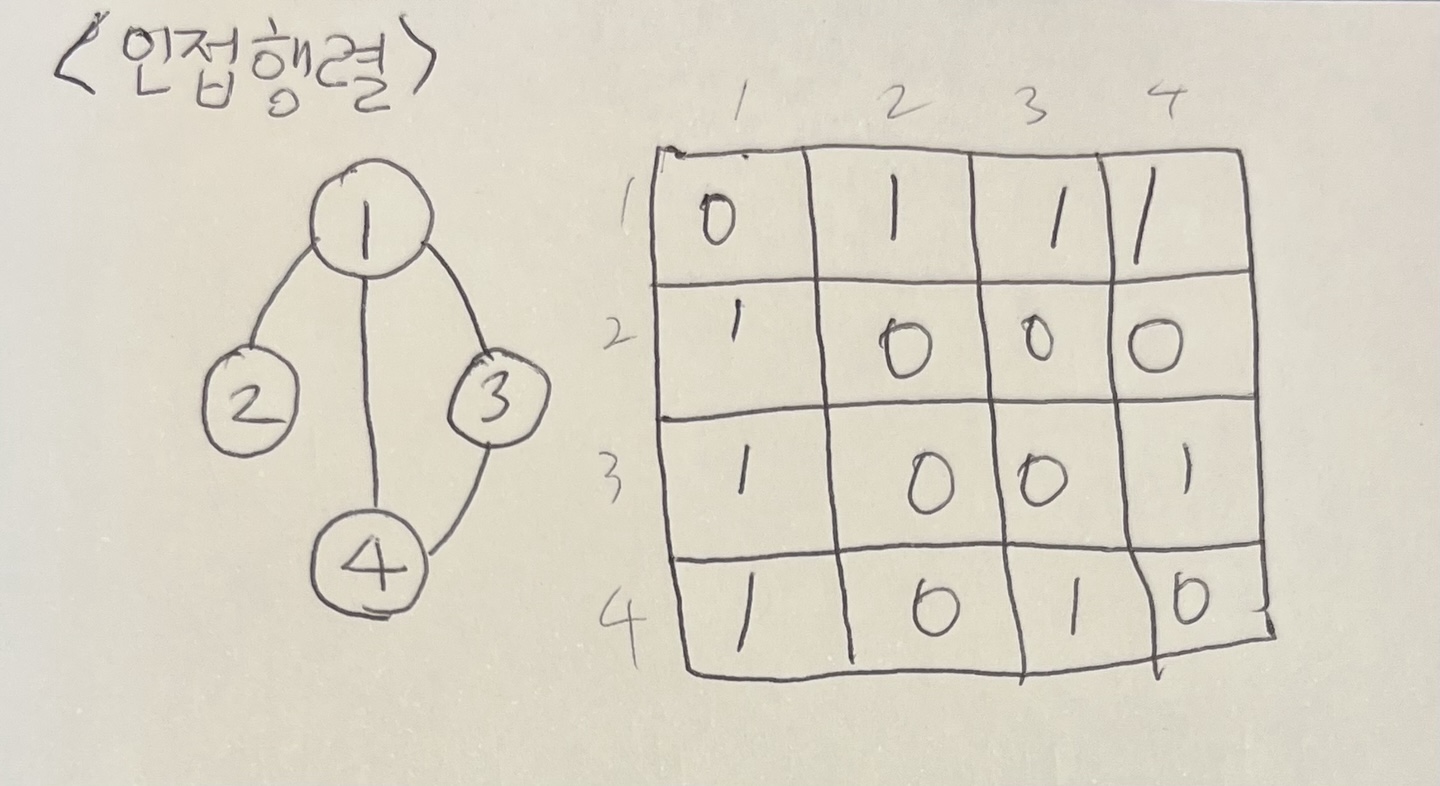 <인접행렬>
1 2 3 4
1
2
3
4
1 0 1 1 1
2 1 0 0 0
3 1 0 0 1
4 1 0 1 0